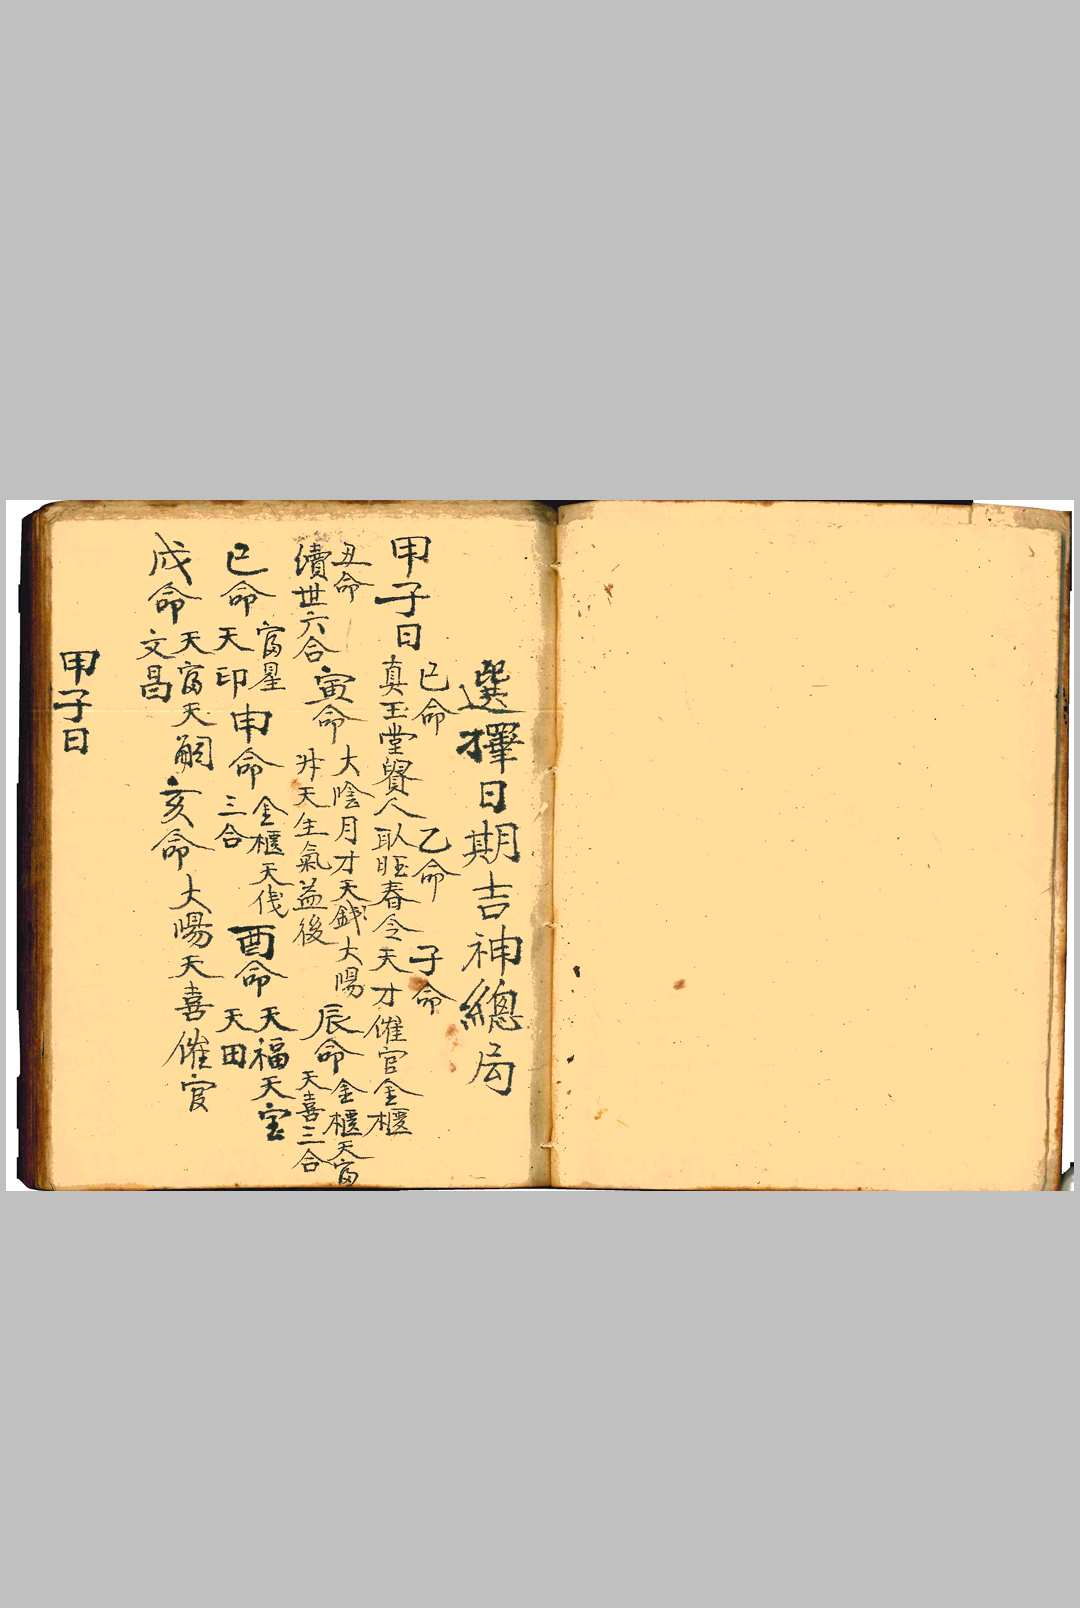 選擇日期吉神總局
甲子日 巳命 乙命 子命
真玉堂貴人 取旺春令天才催官金櫃
丑命 續世六合 寅命 大陰月才天錢大陽 升天生氣益後 辰命 金櫃天富 天喜三合
巳命 富星 天印 申命 金櫃天伐 三合 酉命 天福天宝 天田
戌命 天富天嗣 文昌 亥命 大陽天喜催官
甲子日